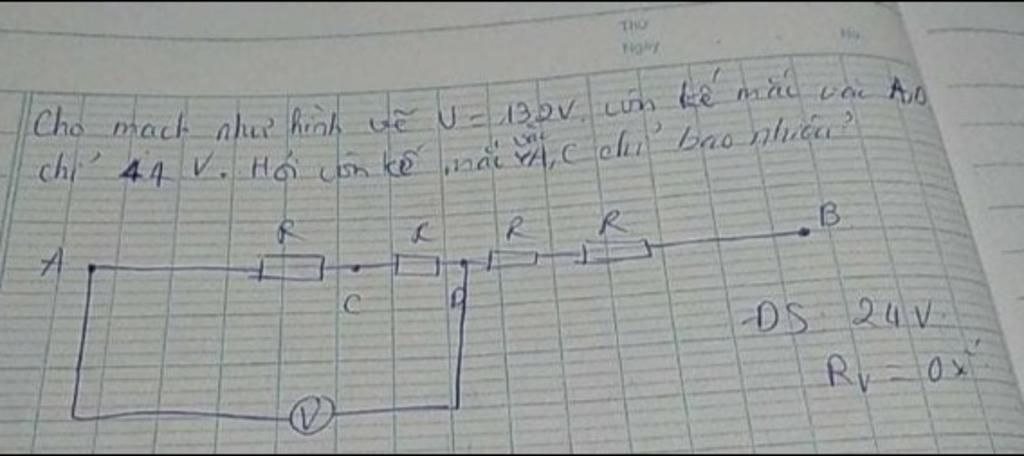 THỨ
NGÀY
No.
Cho mạch như hình vẽ U = 132V. vôn kế mắc vào A,D
chỉ 44 V. Hỏi vôn kế mắc vào A,C chỉ bao nhiêu?
R R R R
A C D B
V
ĐS 24 V.